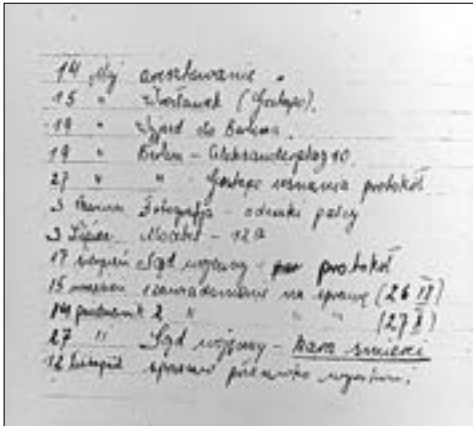 14 maj aresztowanie.
15 " Włocławek (Gestapo).
19 " Wyjazd do Berlina.
19 " Berlin – Aleksanderplaz 10.
27 " " Gestapo zeznania protokół
3 Fotografja – odciski palcy
3 Lipiec Moabit – 12a
17 sierpień Sąd wojenny – protokół
15 wrzesień zawiadomienie na sprawę (26 IX)
14 październik 2 " " " (27 X)
27 " Sąd wojenny – kara śmierci
12 listopad